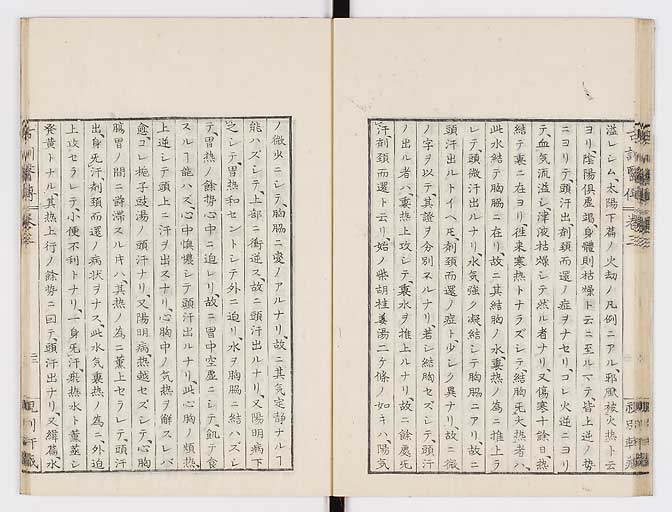 溢レシム、太陽下篇ノ火劫ノ凡例ニアル、邪風被火熱ト云
ヨリ、陰陽倶虚竭、身體則枯燥ト云ニ至ルマテ、皆上逆ノ勢
ニヨリテ、頭汗出劑頸而還ノ症ヲナセリ、コレ火逆ニヨリ
テ、血気流溢シ、津液枯燥シテ然ル者ナリ、又傷寒十餘日、熱
結テ裏ニ在ヨリ、往来寒熱トナラズシテ、結胸无大熱者ハ、
此水結テ胸脇ニ在リ、故ニ其結胸ノ水、裏熱ノ為ニ推上ラ
レテ、頭微汗出ルナリ、水気強ク凝結シテ胸脇ニアリ、故ニ
頭汗出ルトイヘ𪜈、劑頸而還ノ症ト少シク異ナリ、故ニ微
ノ字ヲ以テ、其證ヲ分別ネルナリ、若シ結胸セズシテ、頭汗
ノ出ル者ハ、裏熱上攻シテ、裏水ヲ推上ルナリ、故ニ餘處无
汗、劑頸而還ト云リ、始ノ柴胡桂姜湯ニケ條ノ如キハ、陽気
ノ微少ニシテ、胸脇ニ変ノアルナリ、故ニ其気定静ナルヿ
能ハズシテ、上部ニ衝逆ス、故ニ頭汗出ルナリ、又陽明病下
之シテ、胃熱和セントシテ外ニ迫リ、水ヲ胸脇ニ結ハズシ
テ、胃熱ノ餘勢心中ニ迫レリ、故ニ胃中空虚ニシテ、飢テ食
スルヿ能ハズ、心中懊憹シテ頭汗出ルナリ、此心胸ノ煩熱
上逆シテ、頭上ニ汗ヲ出スナリ、心胸中ノ気熱ヲ解スレバ
愈、コレ梔子豉湯ノ頭汗ナリ、又陽明病、熱越セズシテ、心胸
腸胃ノ間ニ欝滞スルキハ、其熱ノ為ニ薫上セラレテ、頭汗
出、身无汗、劑頸而還ノ病状ヲナス、此水気裏熱ノ為ニ、外迫
上攻セラレテ、小便不利トナリ、一身无汗、瘀熱水ト薫蒸シ
発黄トナル、其熱上行ノ餘勢ニ因テ、頭汗出ナリ、又緝篇水